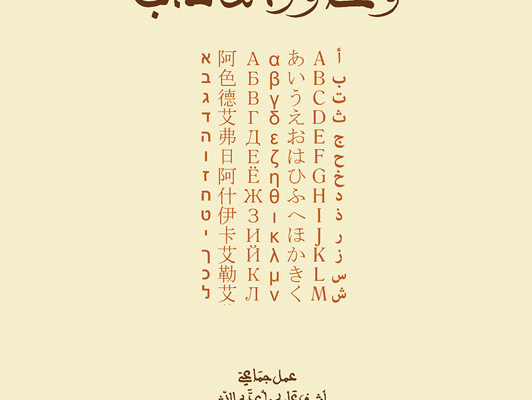 א 阿 А α あ A أ
ב 色 Б β い B ب
ג 德 В γ う C ت
ד 艾 Г δ え D ث
ה 弗 Д ε お E ج
ו 日 Е ζ は F ح
ז 阿 Ё η ひ G خ
ח 什 Ж θ ふ H د
ט 伊 З ι へ I ذ
י 卡 И κ ほ J ر
ך 艾 Й λ か K ز
כ 勒 К μ き L س
ל 艾 Л ν く M ش
عمل جماعيّ